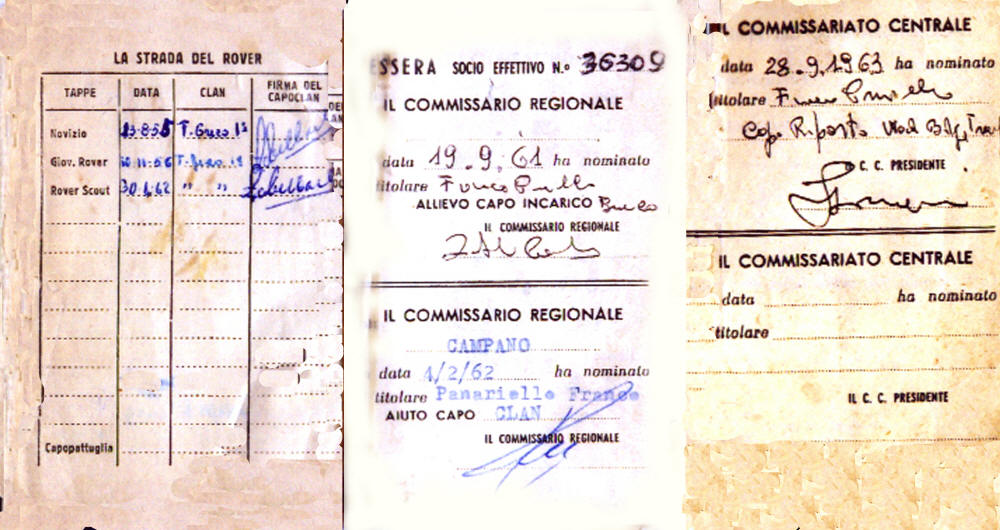 LA STRADA DEL ROVER
TAPPE DATA CLAN FIRMA DEL CAPOCLAN
Novizio T. Greco 1°
Giov. Rover 11.56
Rover Scout 30.1.62 " "
Capopattuglia
ESSERA SOCIO EFFETTIVO N.° 36309
IL COMMISSARIO REGIONALE
data 19.9.61 ha nominato
titolare
ALLIEVO CAPO INCARICO
IL COMMISSARIO REGIONALE
IL COMMISSARIO REGIONALE
CAMPANO
data 1/2/62 ha nominato
titolare Panariello Franco
AIUTO CAPO CLAN
IL COMMISSARIO REGIONALE
IL COMMISSARIATO CENTRALE
data 28.9.1963 ha nominato
titolare
Capo Riparto
C. C. PRESIDENTE
IL COMMISSARIATO CENTRALE
data ha nominato
titolare
IL C. C. PRESIDENTE